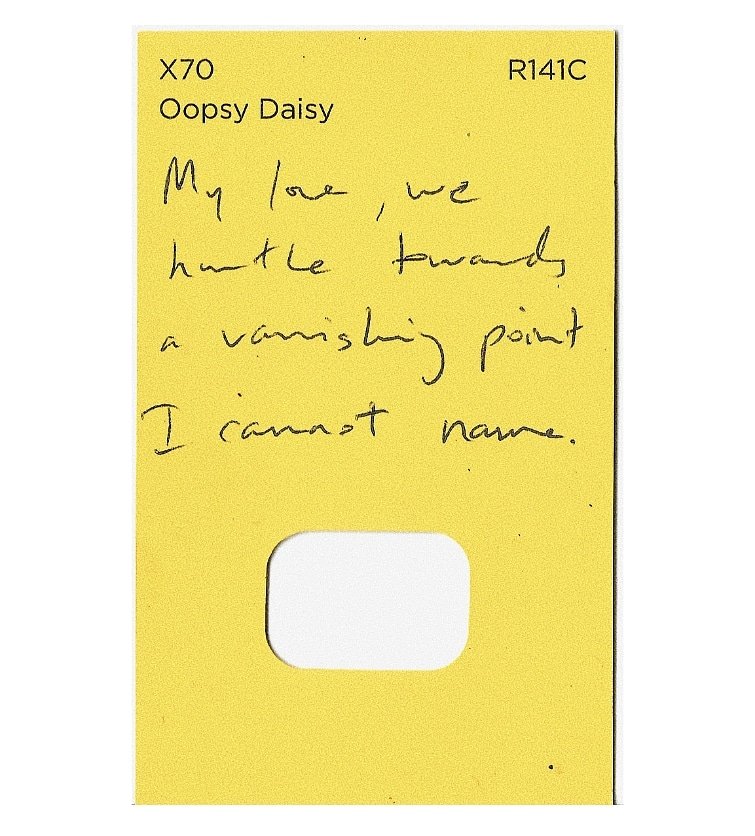 X70 R141C
Oopsy Daisy
My love, we
hurtle towards
a vanishing point
I cannot name.